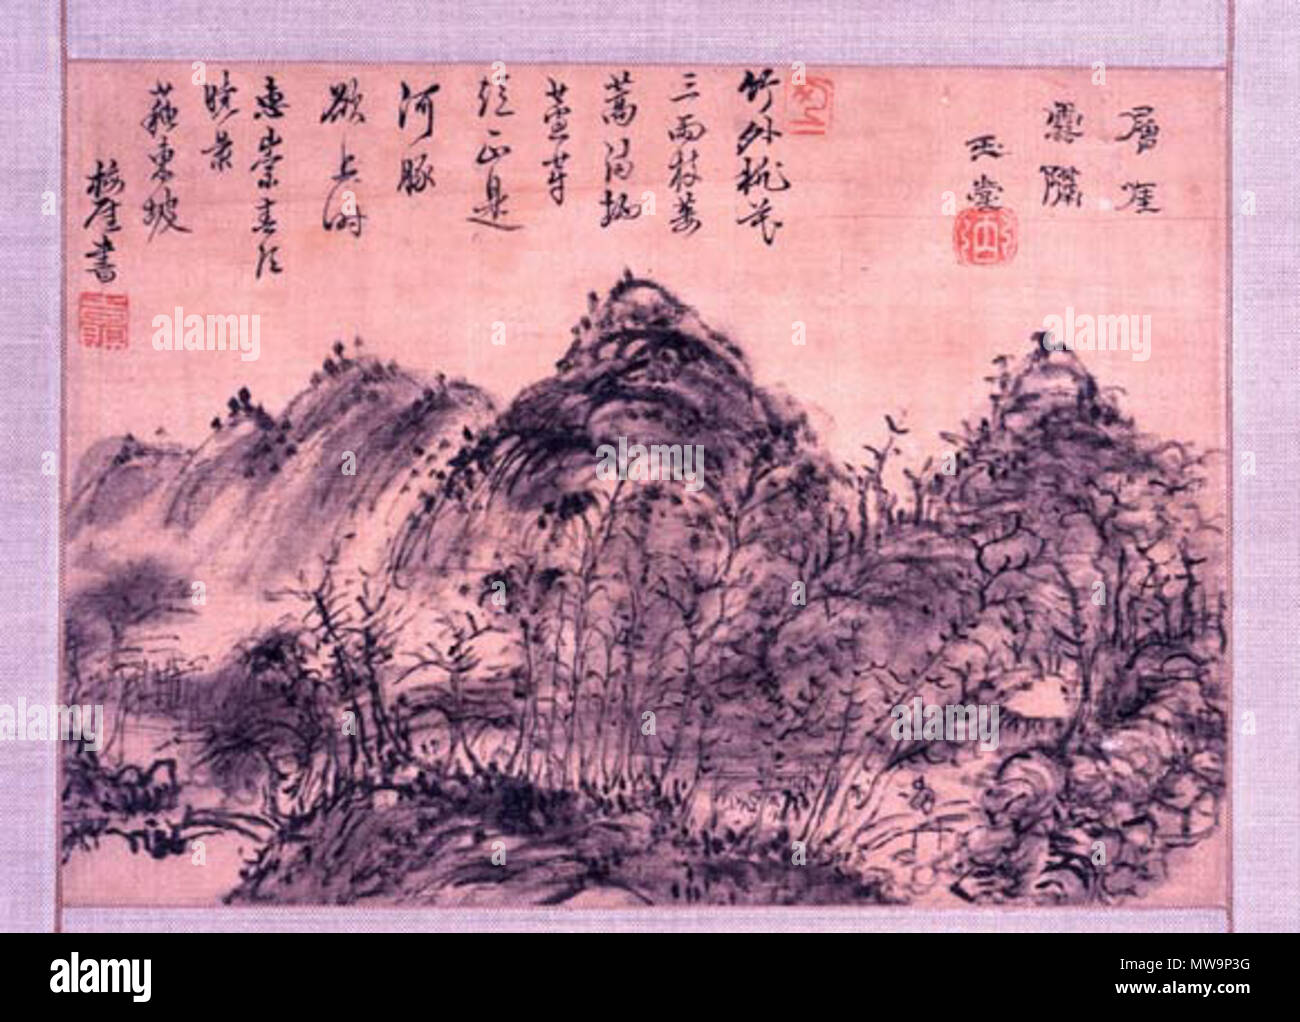 層崖
玉堂
竹外桃花
三兩枝蔞
蒿滿地
蘆芽
短正是
河豚
欲上時
惠崇春江
曉景
蘇東坡
梅厓書
alamy
alamy
alamy
alamy
alamy
alamy
alamy
Image ID: MW9P3G
www.alamy.com